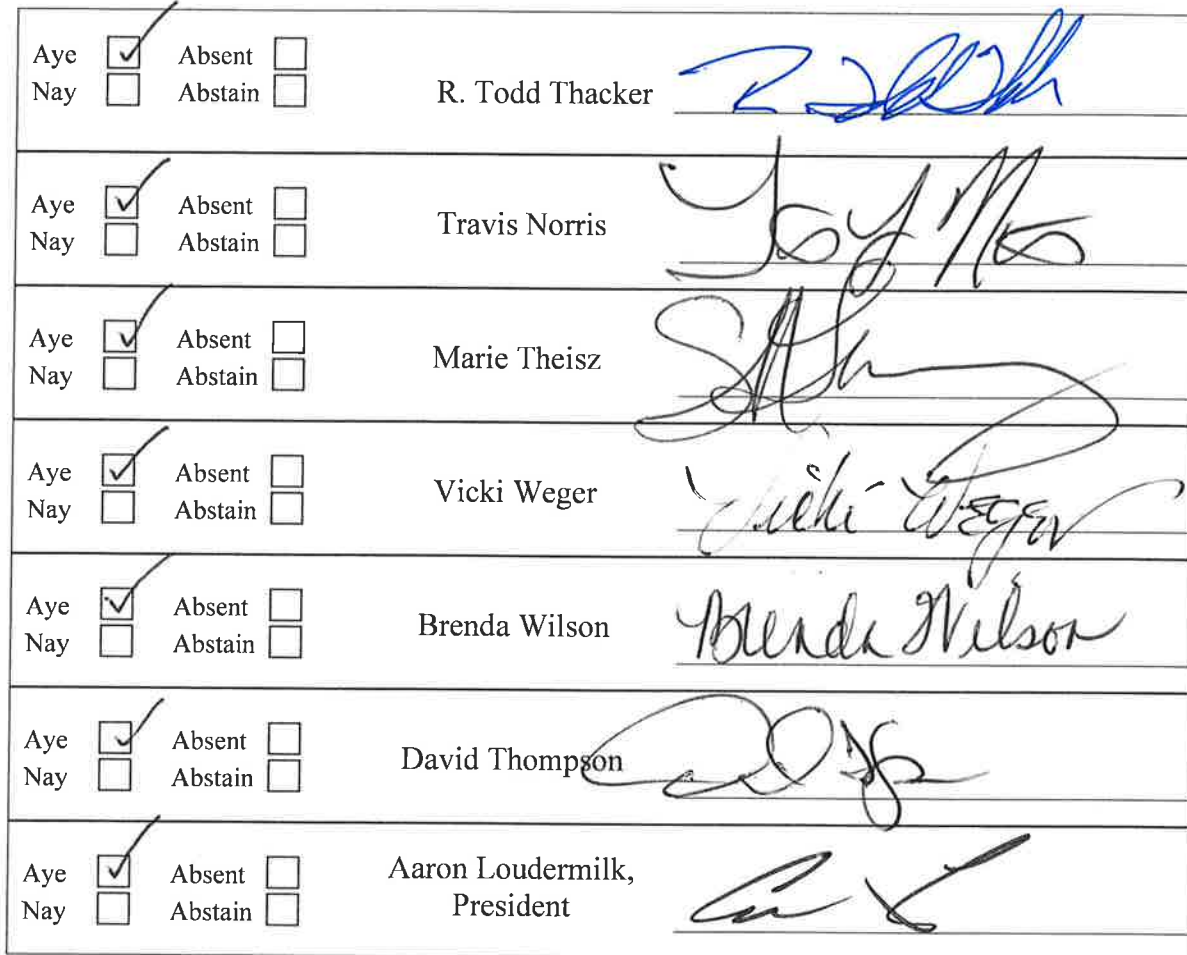 Aye Absent
Nay Abstain
R. Todd Thacker
Aye Absent
Nay Abstain
Travis Norris
Aye Absent
Nay Abstain
Marie Theisz
Aye Absent
Nay Abstain
Vicki Weger
Vicki Weger
Aye Absent
Nay Abstain
Brenda Wilson
Brenda Wilson
Aye Absent
Nay Abstain
David Thompson
Aye Absent
Nay Abstain
Aaron Loudermilk,
President